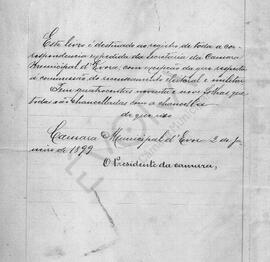 Este livro é destinado ao registro de toda a cor-
respondencia expedida da secretaria da Camara
Municipal d'Evora, com excepção da que respeita
a commissão do recenseamento eleitoral e militar
Tem quatrocentas noventa e nove folhas que
todas são chancelladas com a chancella
de que uso
Camara Municipal d'Evora 2 de Ja-
neiro de 1899
O Presidente da camara,